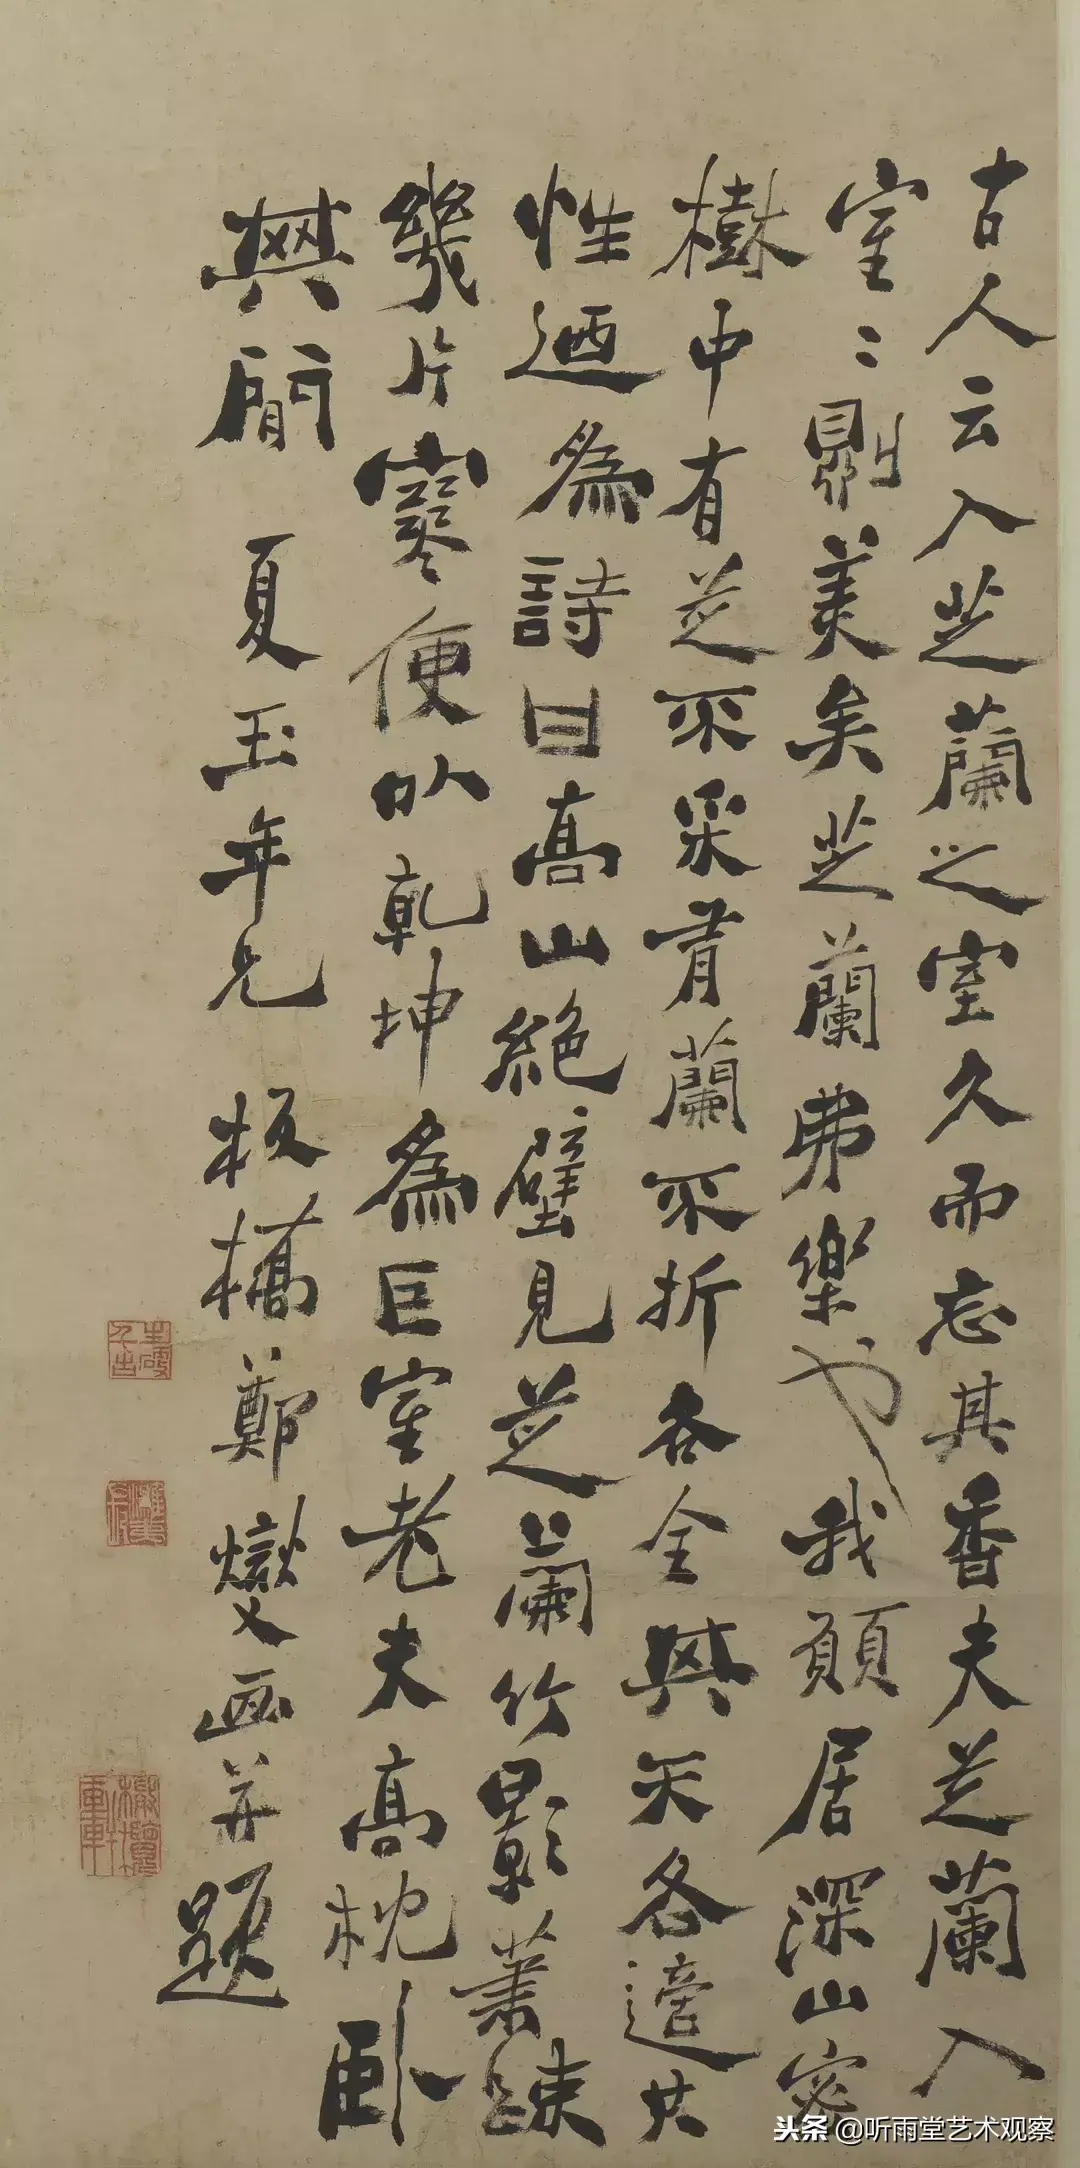 古人云入芝蘭之室久而忘其香夫芝蘭入
室〻則美矣芝蘭弗樂也我願居深山密
樹中有芝不采有蘭不折各全其天各適其
性迺為詩曰高山絕壁見芝蘭竹影蕭疎
幾片寒便以乾坤為巨室老夫高枕臥
其間 夏玉年兄 板橋鄭燮画并題
头条@听雨堂艺术观察